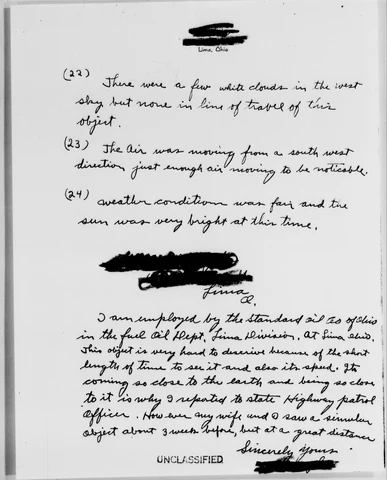 Lima, Ohio
(22)
There were a few white clouds in the west
sky but none in line of travel of this
object.
(23) The Air was moving from a south west
direction just enough air moving to be noticable.
(24) weather condition was fair and the
sun was very bright at this time.
Lima
O.
I am employed by the Standard Oil Co of Ohio
in the fuel Oil Dept, Lima Division. At Lima Ohio.
This object is very hard to describe because of the short
length of time to see it and also its speed. Its
coming so close to the earth and being so close
to it is why I reported to state Highway patrol
Officer. However my wife and I saw a simular
Object about 3 week before, but at a great distance
Sincerely Yours
UNCLASSIFIED